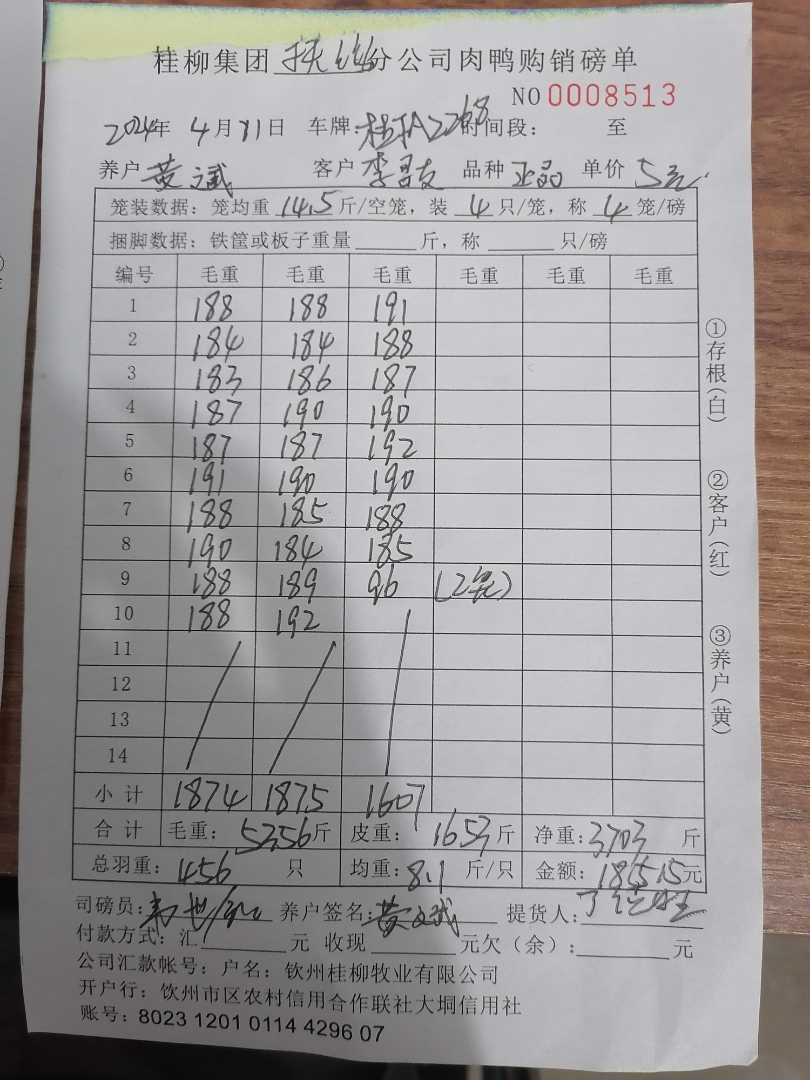 桂柳集团扶绥分公司肉鸭购销磅单
NO 0008513
2024年 4月11日 车牌:桂A2268 时间段: 至
养户 黄文斌 客户 李昌友 品种 正品 单价 5元
笼装数据:笼均重 14.5 斤/空笼,装 4 只/笼,称 4 笼/磅
捆脚数据:铁筐或板子重量 斤,称 只/磅
编号 毛重 毛重 毛重 毛重 毛重 毛重
1 188 188 191
2 184 184 188
3 183 186 187
4 187 190 190
5 187 187 192
6 191 190 190
7 188 185 188
8 190 184 185
9 188 189 96 (2笼)
10 188 192
11
12
13
14
小计 1874 1875 1607
合计 毛重: 5356斤 皮重: 1653斤 净重:3703 斤
总羽重:456 只 均重:8.1 斤/只 金额:18515元
司磅员: 养户签名:黄文斌 提货人:
付款方式:汇 元 收现 元欠(余): 元
公司汇款帐号:户名:钦州桂柳牧业有限公司
开户行:饮州市区农村信用合作联社大垌信用社
账号:8023 1201 0114 4296 07
①存根(白)
②客户(红)
③养户(黄)